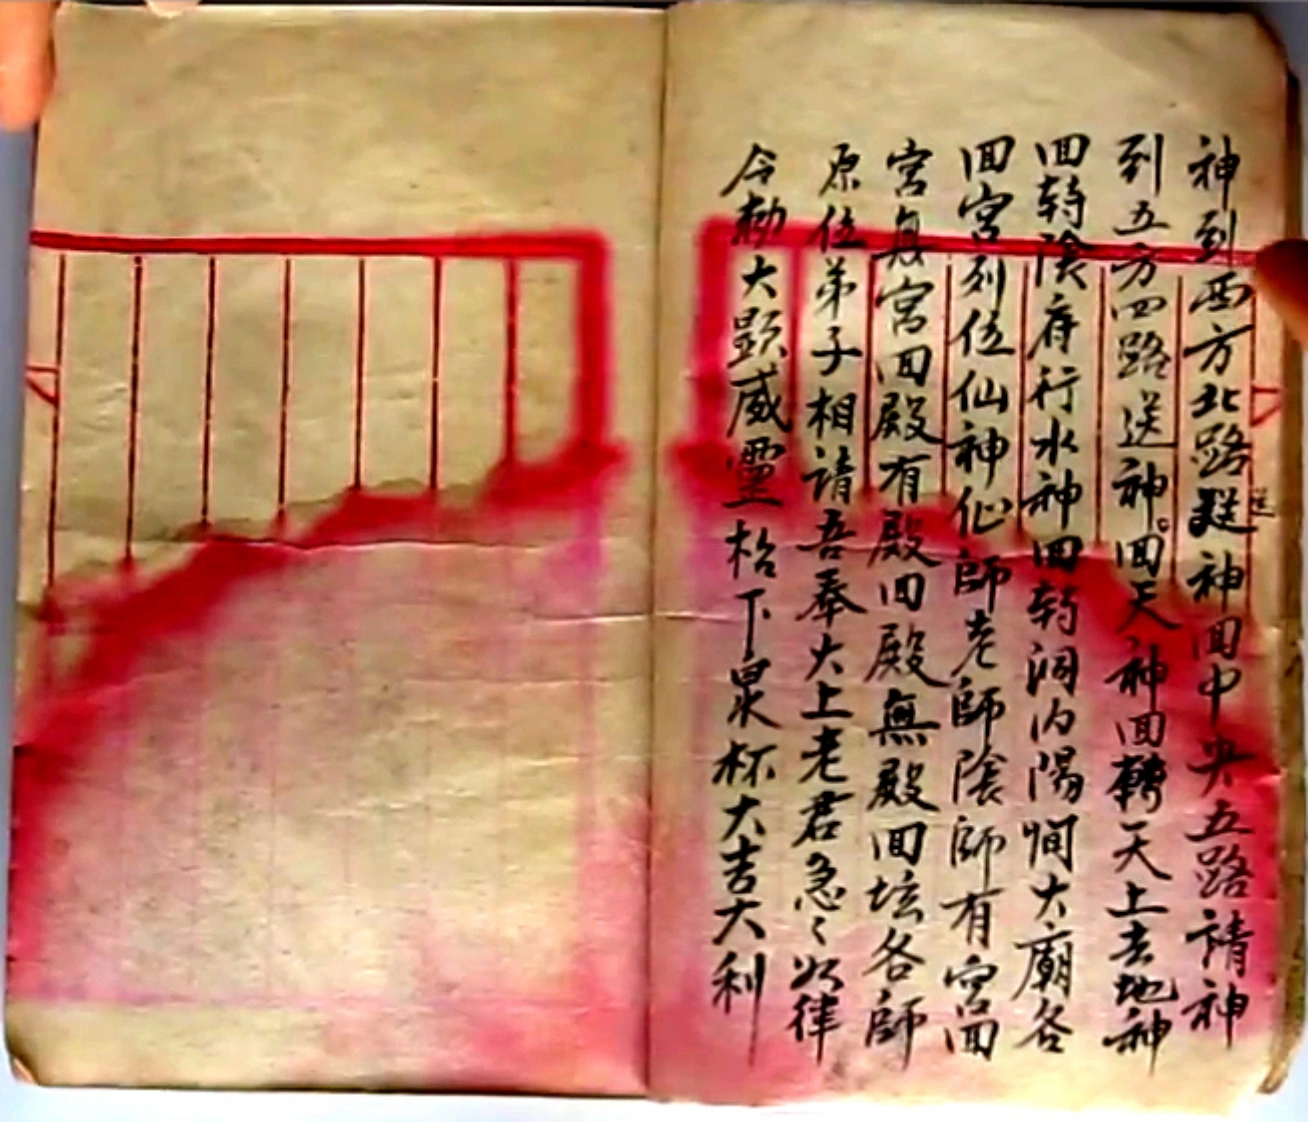 神到西方北路神回中央五路請神
送
到五方四路送神。回天神回轉天上去地神
回轉陰府行水神回轉洞內陽間大廟各
回宮列位仙神仙師老師陰師有宮回
宮無宮回殿有殿回殿無殿回坛各師
原位弟子相請吾奉大上老君急〻如律
令勅大顯威靈 下杯大吉大利